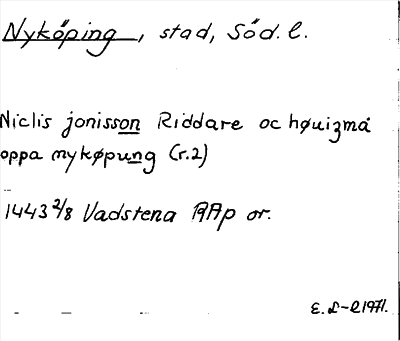 Nyköping, stad, Söd. l.
Niclis jonisson Riddare oc høuizmá
oppa nykøpung (r.2)
1443 2/8 Vadstena RAp or.
E. L-l 1971.